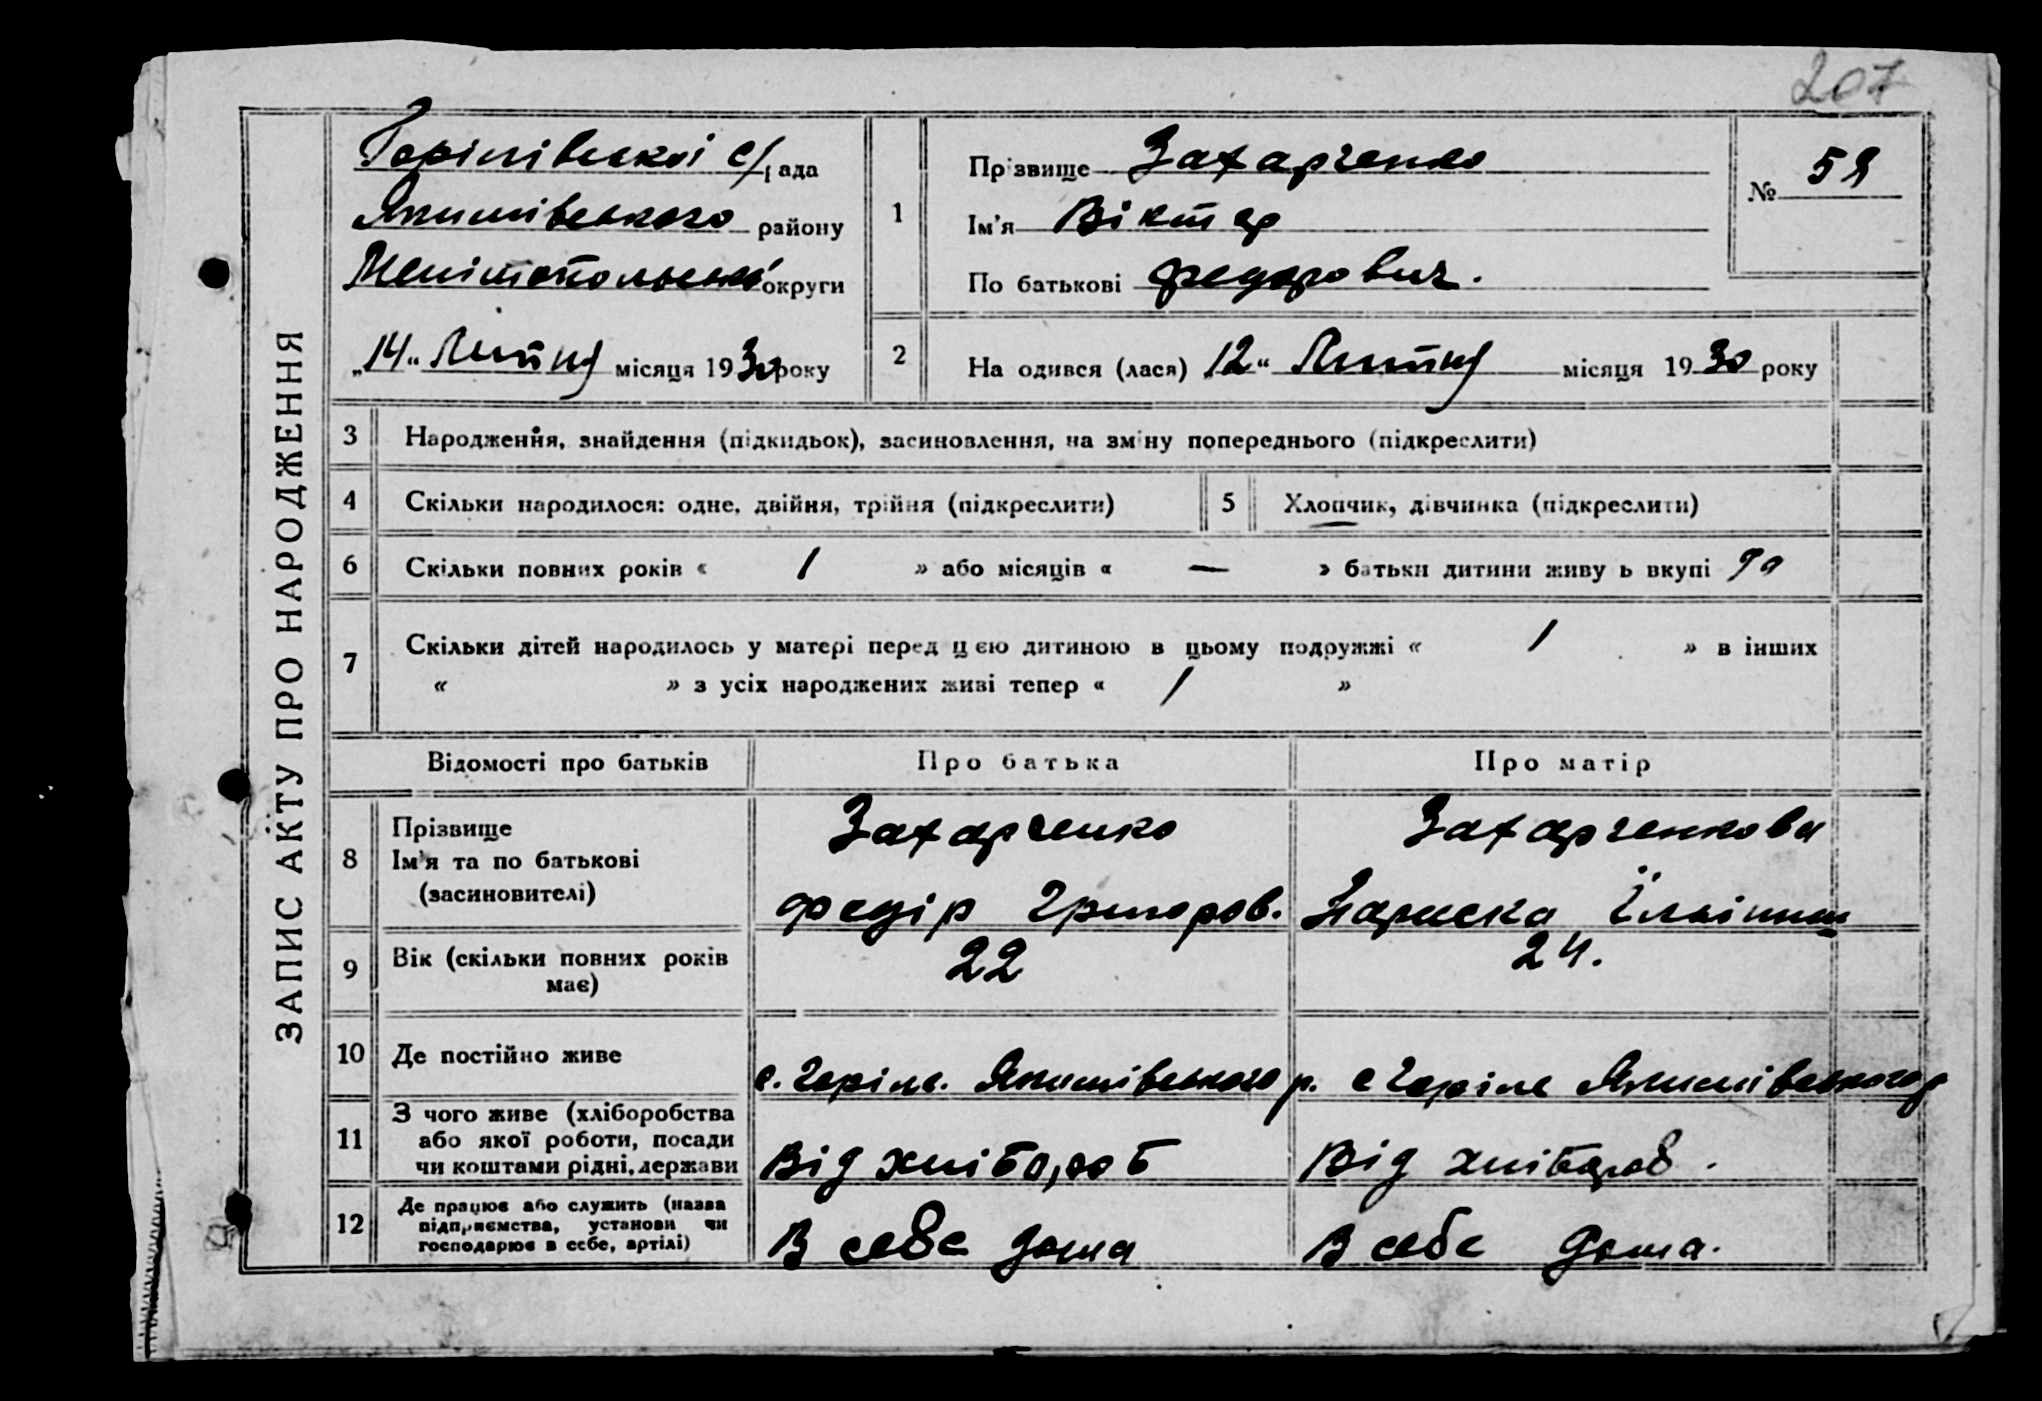 207
ЗАПИС АКТУ ПРО НАРОДЖЕННЯ
Горілівської с/рада
Якимівського району
Мелітопольської округи
„14“ Липня місяця 1930 року
1
Прізвище Захарченко
Ім'я Віктор
По батькові Федорович.
№ 59
2
На одився (лася) „12“ Липня місяця 1930 року
3 Народження, знайдення (підкидьок), засиновлення, на зміну попереднього (підкреслити)
4 Скільки народилося: одне, двійня, трійня (підкреслити) 5 Хлопчик, дівчинка (підкреслити)
6 Скільки повних років « 1 » або місяців « — » батьки дитини живу ь вкупі да
7 Скільки дітей народилось у матері перед цією дитиною в цьому подружжі « 1 » в інших
« » з усіх народжених живі тепер « 1 »
Відомості про батьків Про батька Про матір
8 Прізвище Захарченко Захарченкова
Ім'я та по батькові
(засиновителі) Федір Григоров. Параска Ільінишна
9 Вік (скільки повних років має) 22 24.
10 Де постійно живе с. Горіле. Якимівського р. с Горіле Якимівського р
11 З чого живе (хліборобства
або якої роботи, посади
чи коштами рідні, держави Від хлібороб Від хлібороб.
12 Де працює або служить (назва
підприємства, установи чи
господарює в себе, артілі) В себе дома В себе дома.